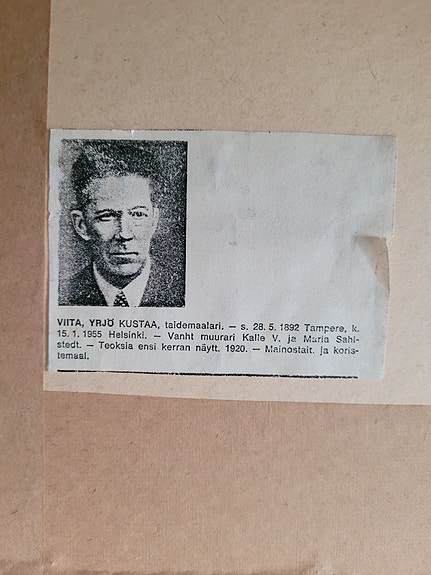 VIITA, YRJÖ KUSTAA, taidemaalari. — s. 28. 5. 1892 Tampere, k.
15. 1. 1955 Helsinki. — Vanht muurari Kalle V. ja Maria Sahl-
stedt. — Teoksia ensi kerran näytt. 1920. — Mainostait. ja koris-
temaal.